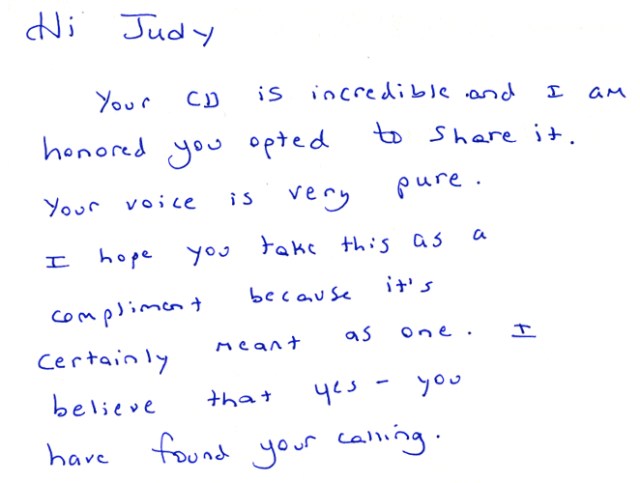 Hi Judy
Your CD is incredible and I am
honored you opted to share it.
Your voice is very pure.
I hope you take this as a
compliment because it's
certainly meant as one. I
believe that yes - you
have found your calling.